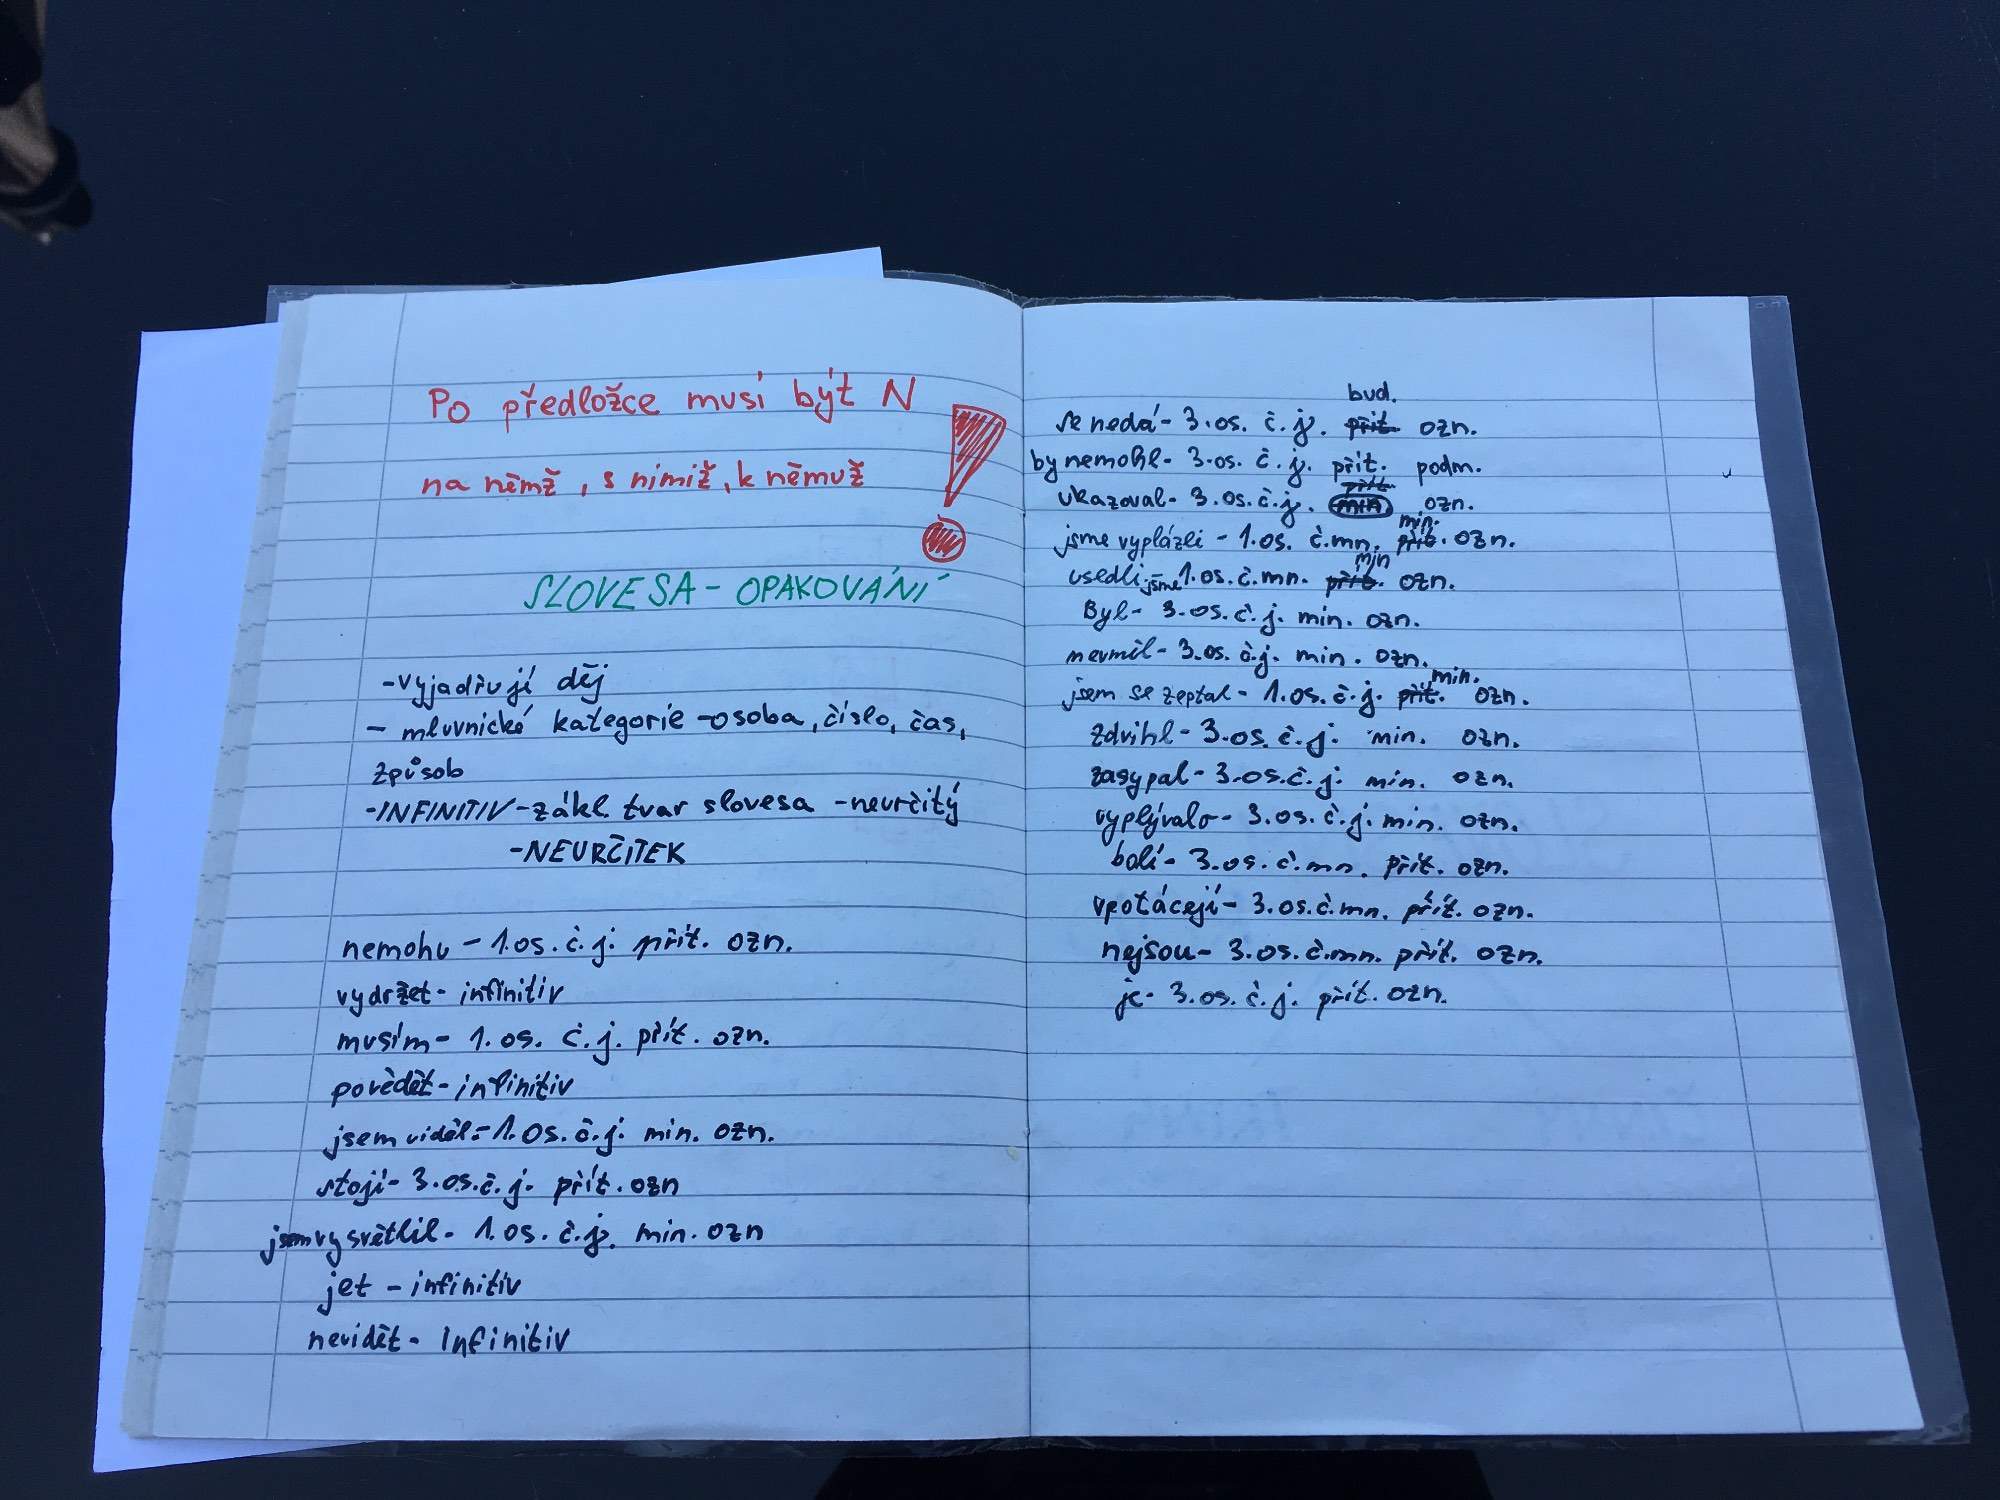 Po předložce musí být N
na němž, s nimiž, k němuž
SLOVESA - OPAKOVÁNÍ
- vyjadřují děj
- mluvnické kategorie - osoba, číslo, čas,
způsob
- INFINITIV - zákl. tvar slovesa - neurčitý
- NEURČITEK
nemohu - 1. os. č. j. přít. ozn.
vydržet - infinitiv
musím - 1. os. č. j. přít. ozn.
povědět - infinitiv
jsem viděl - 1. os. č. j. min. ozn.
stojí - 3. os. č. j. přít. ozn
jsem vysvětlil - 1. os. č. j. min. ozn
jet - infinitiv
nevidět - infinitiv
bud.
se nedá - 3. os. č. j. přít. ozn.
by nemohl - 3. os. č. j. přít. podm.
přít.
ukazoval - 3. os. č. j. min ozn.
min.
jsme vyplázli - 1. os. č. mn. přít. ozn.
min
usedli jsme - 1. os. č. mn. přít. ozn.
Byl - 3. os. č. j. min. ozn.
neumil - 3. os. č. j. min. ozn.
min.
jsem se zeptal - 1. os. č. j. přít. ozn.
zdvihl - 3. os. č. j. min. ozn.
zasypal - 3. os. č. j. min. ozn.
vyplývalo - 3. os. č. j. min. ozn.
bolí - 3. os. č. mn. přít. ozn.
vpotácejí - 3. os. č. mn. přít. ozn.
nejsou - 3. os. č. mn. přít. ozn.
je - 3. os. č. j. přít. ozn.